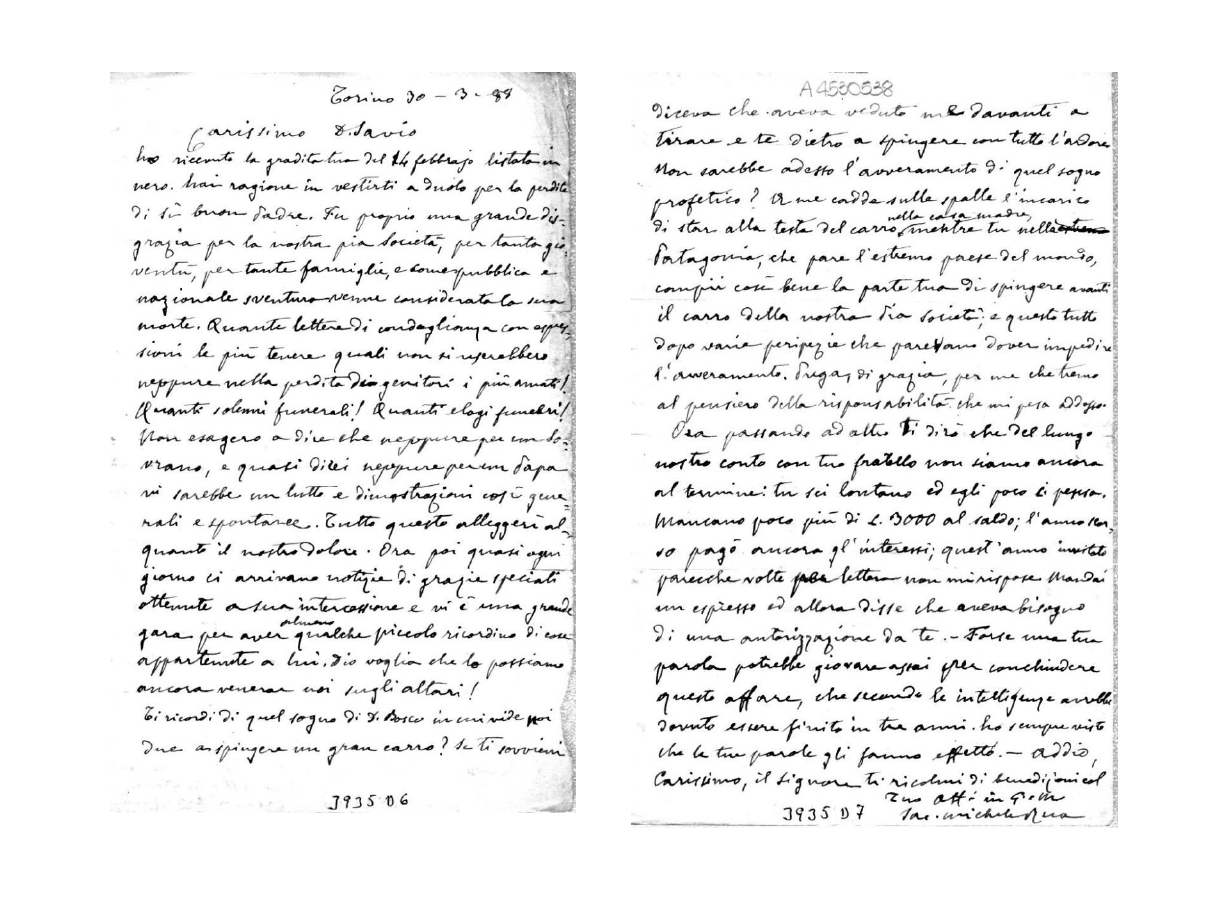 Torino 30 - 3 - 88
Carissimo D. Savio
ho ricevuto la gradita tua del 14 febbrajo listata in
nero. hai ragione in vestirti a duolo per la perdita
di sì buon Padre. Fu proprio una grande dis-
grazia per la nostra pia Società, per tanta gio-
ventù, per tante famiglie, e come pubblica e
nazionale sventura venne considerata la sua
morte. Quante lettere di condoglianza con espres-
sioni le più tenere quali non si userebbero
neppure nella perdita dei genitori i più amati!
Quanti solenni funerali! Quanti elogi funebri!
Non esagero a dire che neppure per un So-
vrano, e quasi direi neppure per un Papa
vi sarebbe un lutto e dimostrazioni così gene-
rali e spontanee. Tutto questo alleggerì al-
quanto il nostro dolore. Ora poi quasi ogni
giorno ci arrivano notizie di grazie speciali
ottenute a sua intercessione e vi è una grande
gara per aver almeno qualche piccolo ricordino di cose
appartenute a lui. Dio voglia che lo possiamo
ancora venerar noi sugli altari!
Ti ricordi di quel sogno di D. Bosco in cui vide noi
due a spingere un gran carro? Se ti sovvieni
3935 D6
A4530538
diceva che aveva veduto me davanti a
tirare e te dietro a spingere con tutto l'ardore
Non sarebbe adesso l'avveramento di quel sogno
profetico? A me cadde sulle spalle l'incarico
di star alla testa del carro nella casa madre, mentre tu nella
Patagonia, che pare l'estremo paese del mondo,
compii così bene la parte tua di spingere avanti
il carro della nostra Pia Società; e questo tutto
dopo varie peripezie che parevano dover impedire
l'avveramento. Prega, di grazia, per me che tremo
al pensiero della risponsabilità che mi pesa addosso.
Ora passando ad altro Ti dirò che del lungo
nostro conto con tuo fratello non siamo ancora
al termine: tu sei lontano ed egli poco ci pensa.
Mancano poco più di L. 3000 al saldo; l'anno scor-
so pagò ancora gl'interessi; quest'anno invitato
parecchie volte per lettera non mi rispose. Mandai
un espresso ed allora disse che aveva bisogno
di una autorizzazione da te. - Forse una tua
parola potrebbe giovare assai per conchiudere
questo affare, che secondo le intelligenze avrebbe
dovuto essere finito in tre anni. ho sempre visto
che le tue parole gli fanno effetto. - Addio,
Carissimo, il Signore ti ricolmi di benedizioni col
Tuo Aff. in G. e M.
Sac. Michele Rua
3935 D7